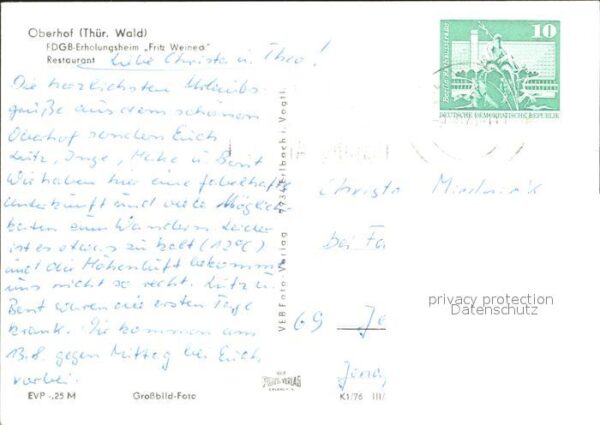 Oberhof (Thür. Wald)
FDGB-Erholungsheim „Fritz Weineck"
Restaurant
Liebe Christa u. Theo!
Die herzlichsten Urlaubs-
grüße aus dem schönen
Oberhof senden Euch
Lutz, Inge, Meike u. Berit
Wir haben hier eine fabelhafte
Unterkunft und viele Möglich
keiten zum Wandern. Leider
ist es etwas zu kalt (12°C)
und die Höhenluft bekommt
uns nicht so recht. Lutz u.
Berit waren die ersten Tage
krank. Wir kommen am
13.8. gegen Mittag bei Euch
vorbei.
EVP -.25 M
Großbild-Foto
VEB Foto-Verlag 9934 Erlbach i. Vogtl.
VEB
FOTO-VERLAG
ERLBACH
K1/76 III/
10
DEUTSCHE DEMOKRATISCHE REPUBLIK
Christa
bei Fa
69 Je
Jena,
privacy protection
Datenschutz